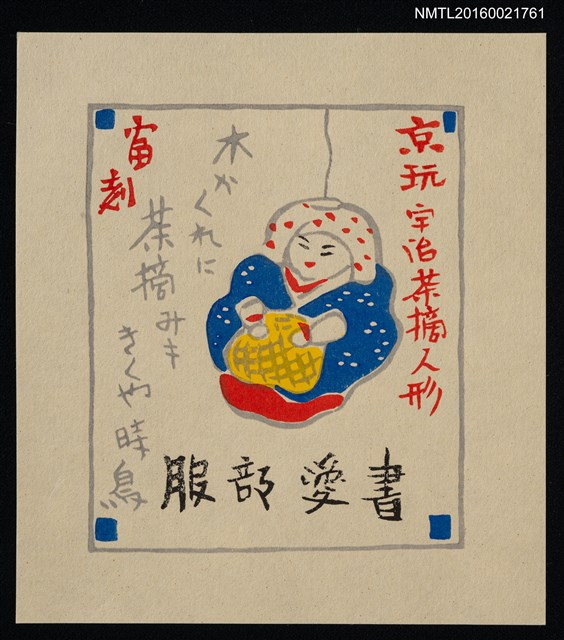 NMTL20160021761
京玩宇治茶摘人形
木がくれに
茶摘みも
きくや時鳥
富刻
服部愛書